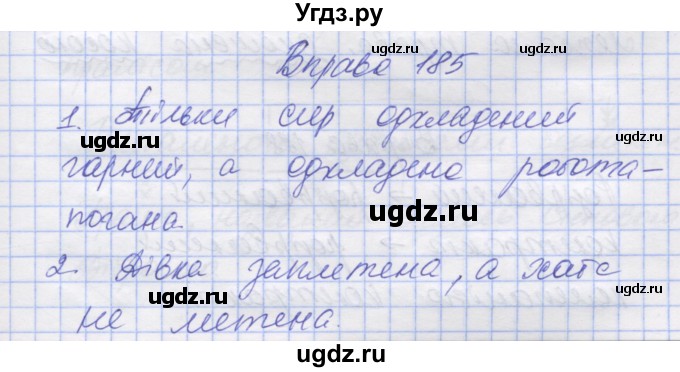 Угдз.ру
Вправа 185
1. Тільки сир одкладений
гарний, а одкладена робота-
погана.
2. Дівка заплетена, а хата
не метена.
ugdz.ru
ugdz.ru
ugdz.ru
ugdz.ru
ugdz.ru
ugdz.ru
ugdz.ru
ugdz.ru
ugdz.ru
ugdz.ru